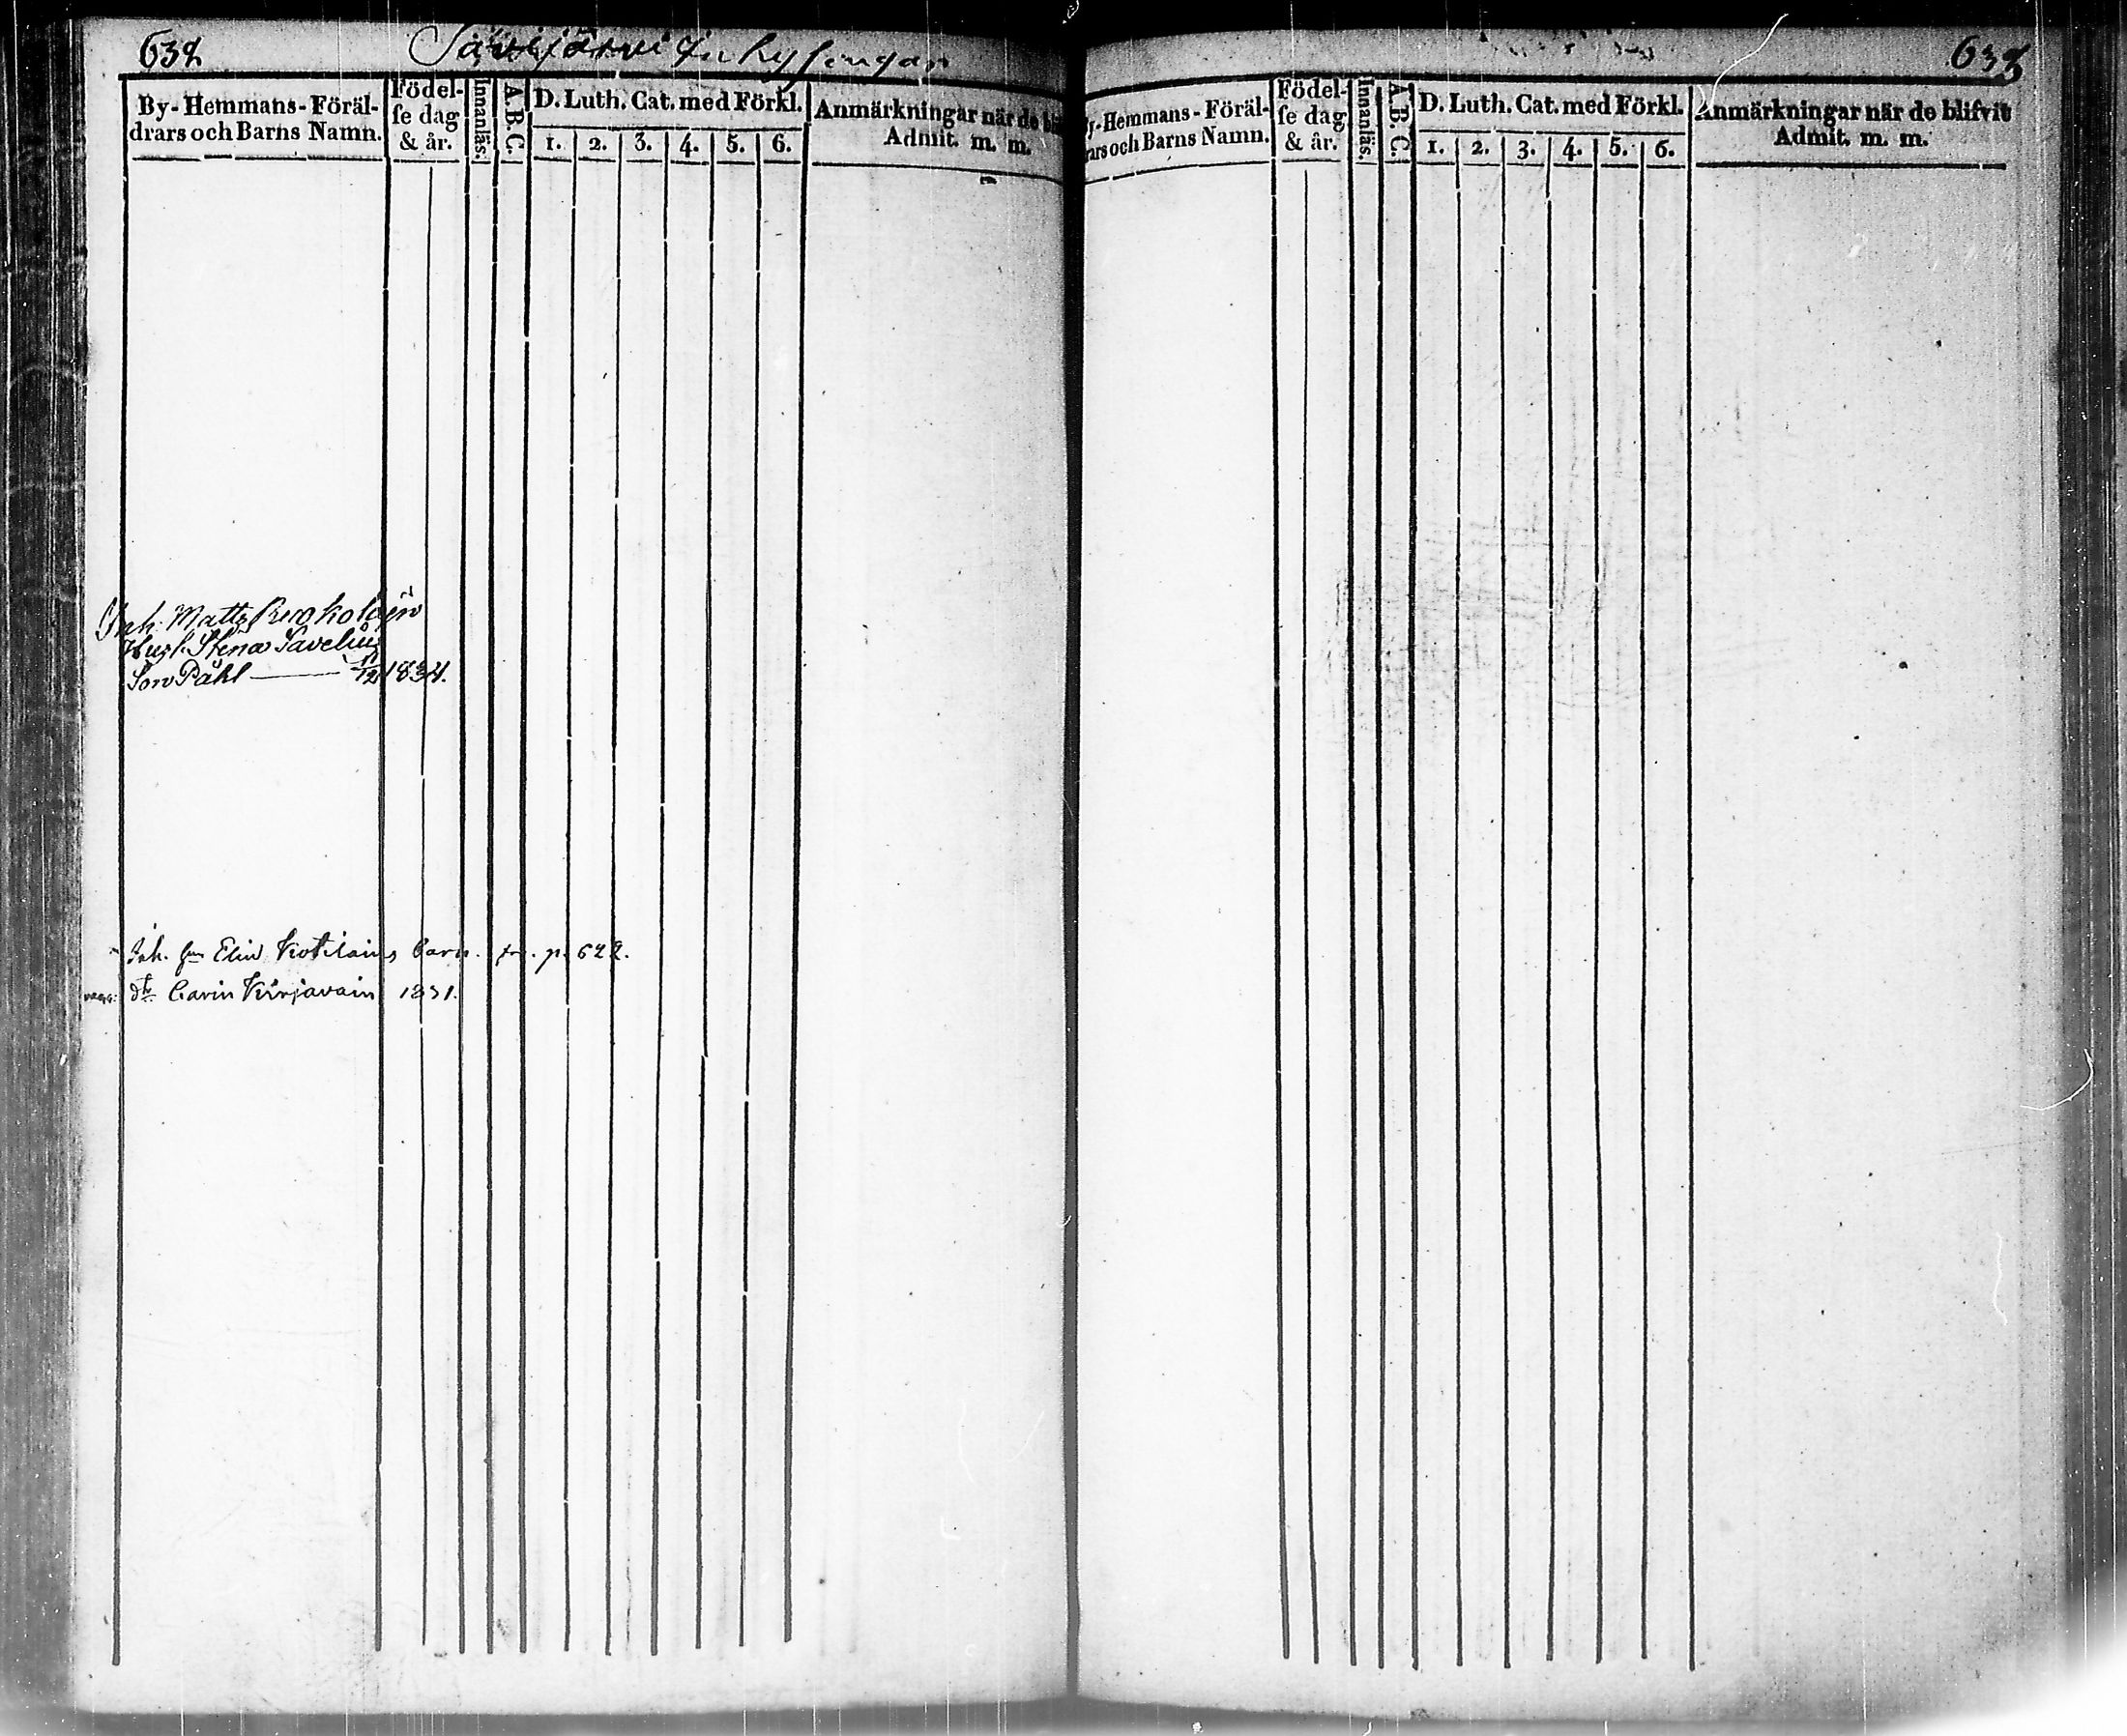 632
Särkijärvi Inhysingar
By- Hemmans- Föräl-
drars och Barns Namn.
Födel-
se dag
& år.
Innanläs.
A.B.C.
D. Luth. Cat. med Förkl.
1. 2. 3. 4. 5. 6.
Anmärkningar när de bli
Admit. m. m.
Inh. Matts
Hust. Stina Savelius
Son Påhl 11/12 1834.
Inh. Elin Kotilains barn. p. 622.
dtr Carin Kirjavain 1831.
633
y- Hemmans- Föräl-
rars och Barns Namn.
Födel-
se dag
& år.
Innanläs.
A.B.C.
D. Luth. Cat. med Förkl.
1. 2. 3. 4. 5. 6.
Anmärkningar när de blifvit
Admit. m. m.